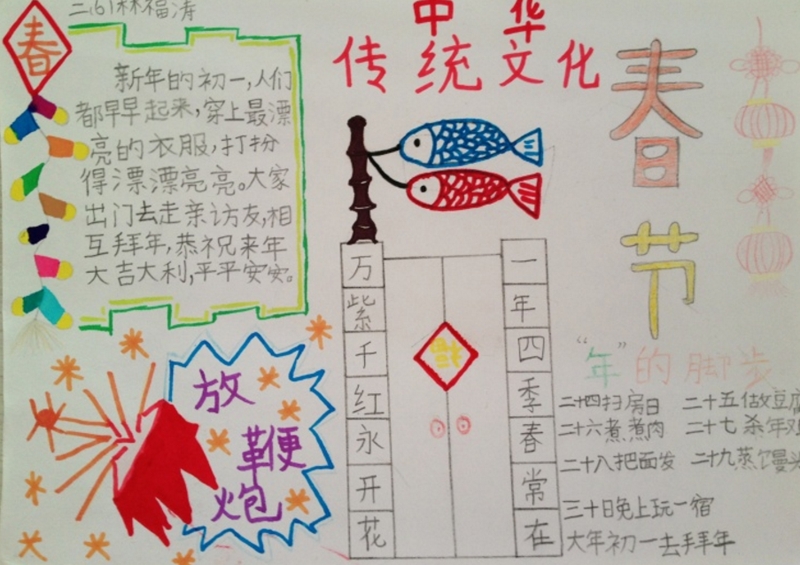 二(6)林福涛
春
新年的初一,人们
都早早起来,穿上最漂
亮的衣服,打扮
得漂漂亮亮。大家
出门去走亲访友,相
互拜年,恭祝来年
大吉大利,平平安安。
中华
传统文化
春节
放
鞭
炮
一年四季春常在
万紫千红永开花
福
"年"的脚步
二十四扫房日 二十五做豆腐
二十六煮煮肉 二十七杀年鸡
二十八把面发 二十九蒸馒头
三十日晚上玩一宿
大年初一去拜年